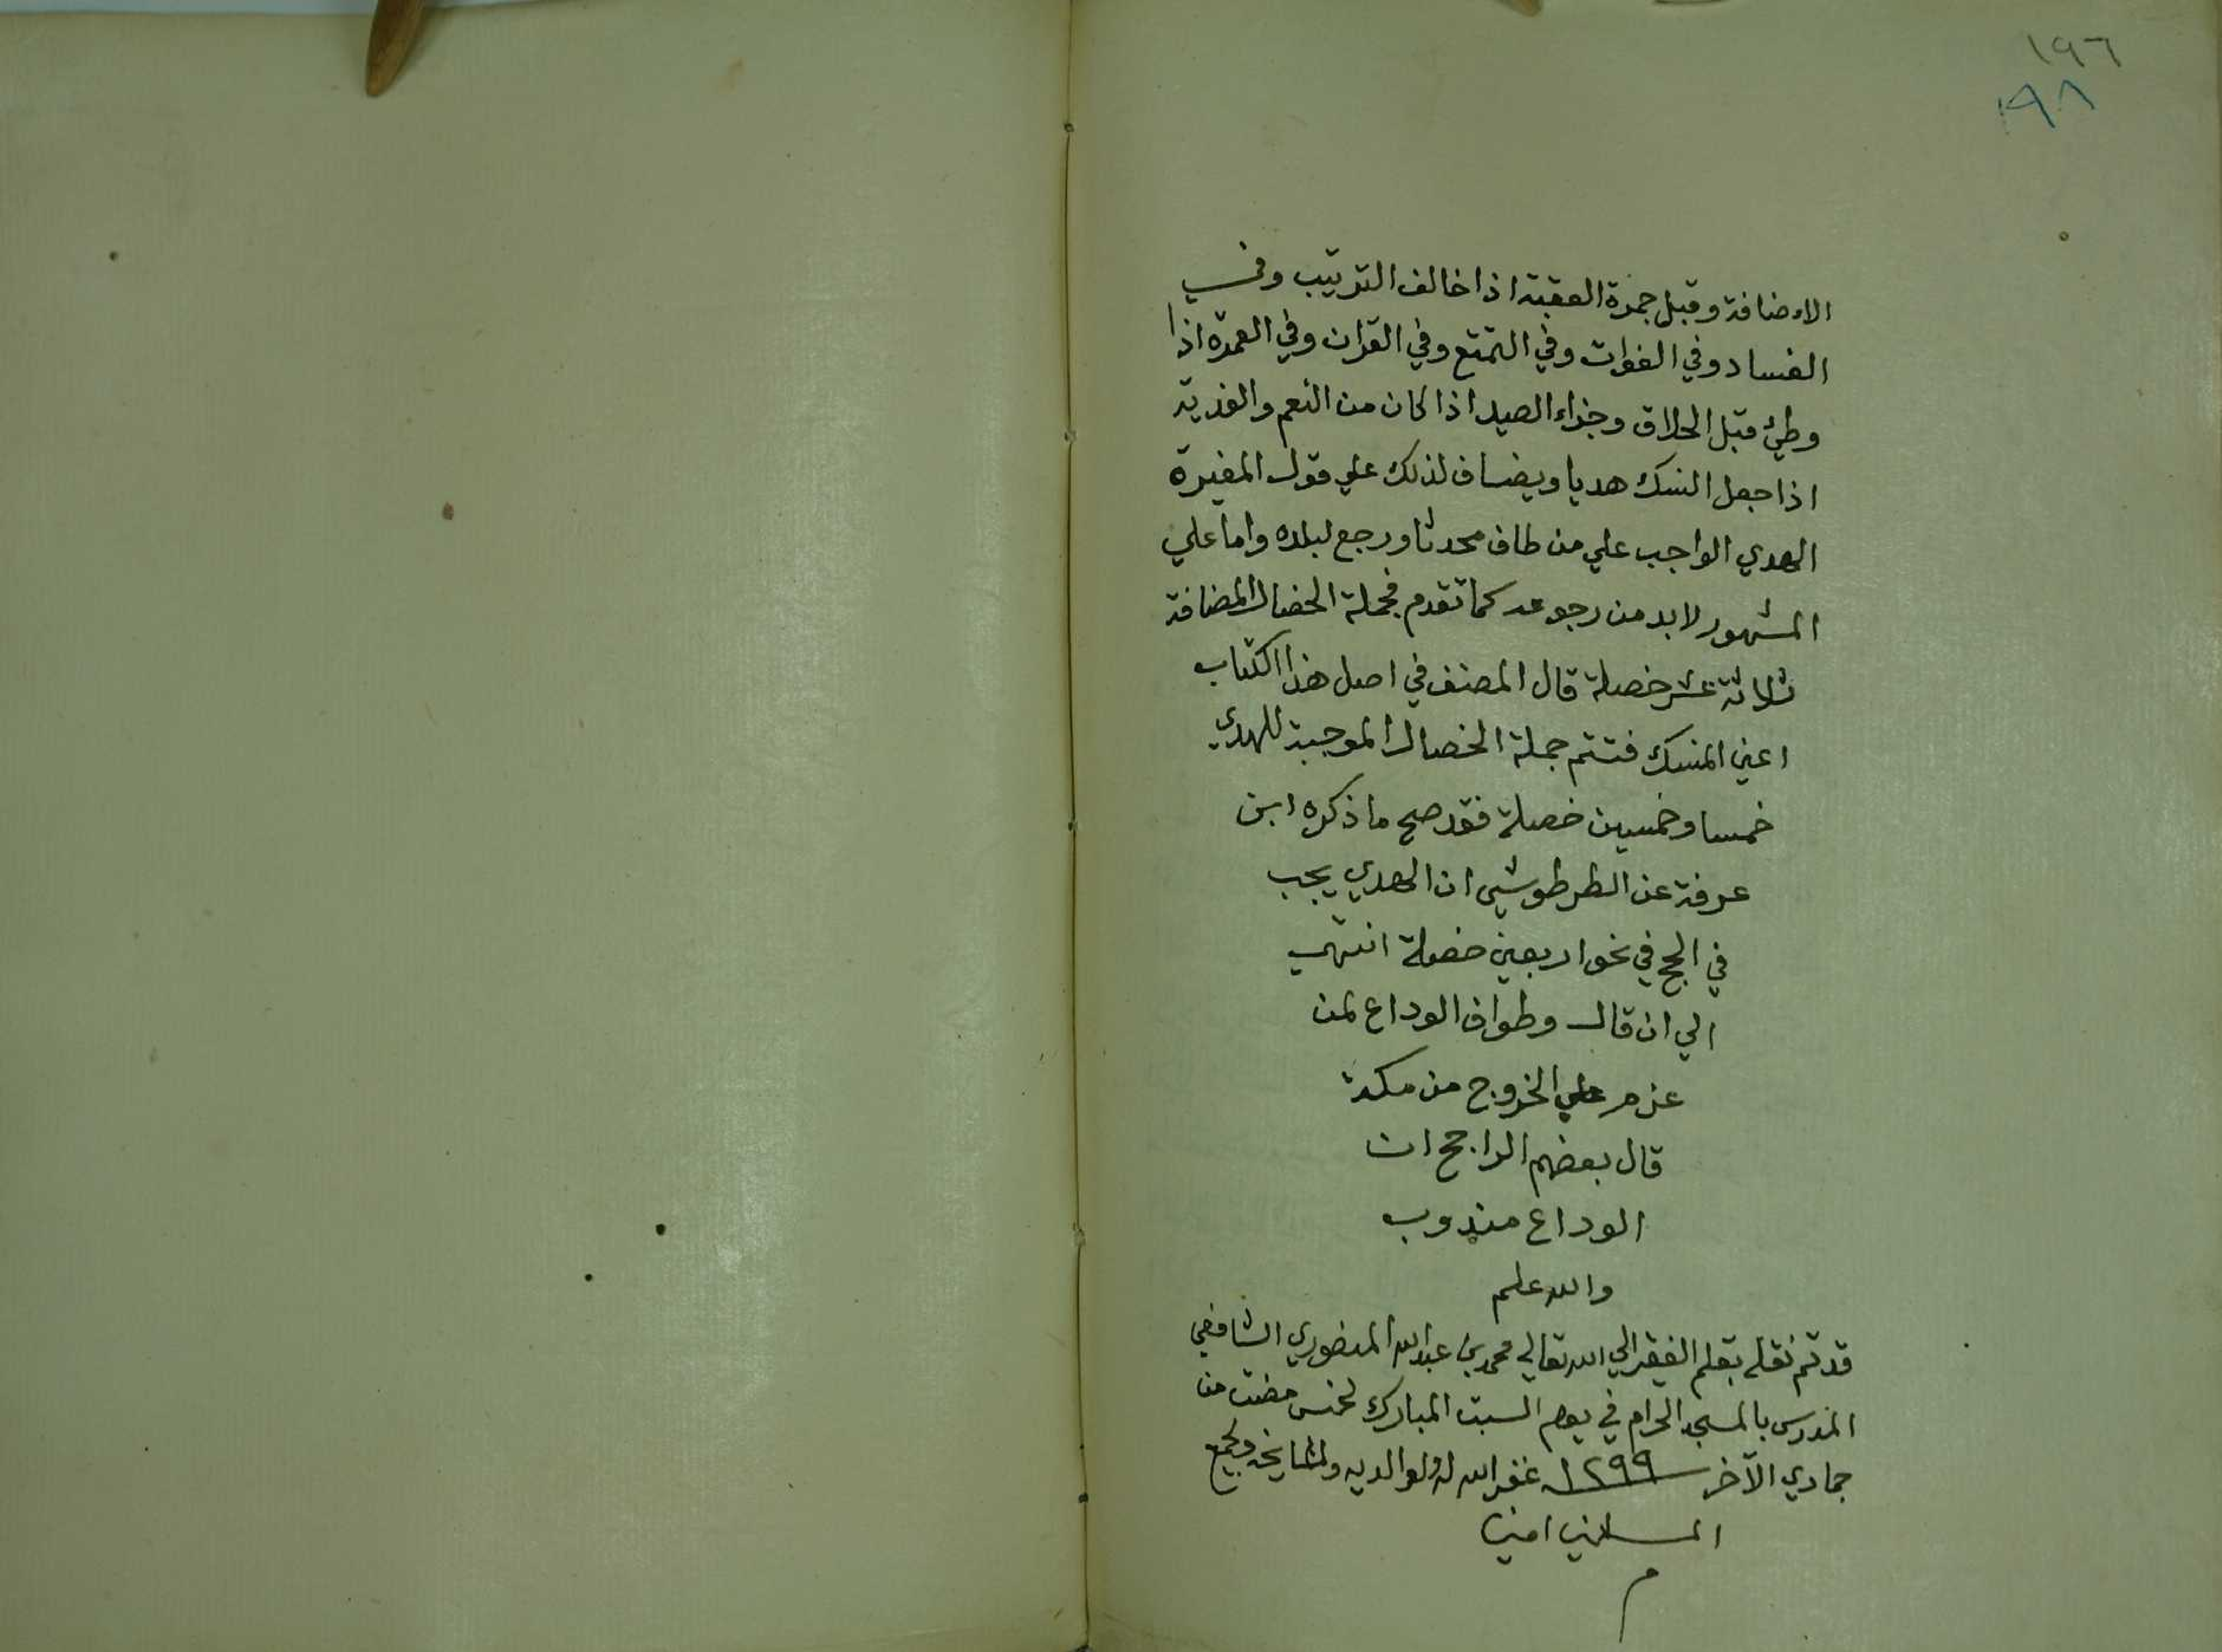 ١٩٦
١٩٨
الاضافة وقبل جمرة العقبة اذا خالف الترتيب وفي
الفساد وفي الفوات وفي التمتع وفي القران وفي العمرة اذا
وطئ قبل الحلاق وجزاء الصيد اذا كان من النعم والفدية
اذا جعل النسك هديا ويضاف لذلك علي قول المغيرة
الهدي الواجب علي من طاف محدثا ورجع لبلده واما علي
المشهور لا بد من رجوعه كما تقدم فجملة الخصال المضافة
ثلاثة عشر خصلة قال المصنف في اصل هذا الكتاب
اعني المنسك فتتم جملة الخصال الموجبة للهدي
خمسا وخمسين خصلة فقد صح ما ذكره ابن
عرفة عن الطرطوشي ان الهدي يجب
في الحج في نحو اربعين خصلة انتهي
الي ان قال وطواف الوداع لمن
عزم علي الخروج من مكة
قال بعضهم الراجح ان
الوداع مندوب
والله علم
قد تم نقله بقلم الفقير الي الله تعالي محمد بن عبد الله المنصوري الشافعي
المدرس بالمسجد الحرام في يوم السبت المبارك لخمس مضت من
جمادي الآخر ١٢٩٩ غفر الله له ولوالديه ولمشايخه ولجميع
المسلمين امين
م